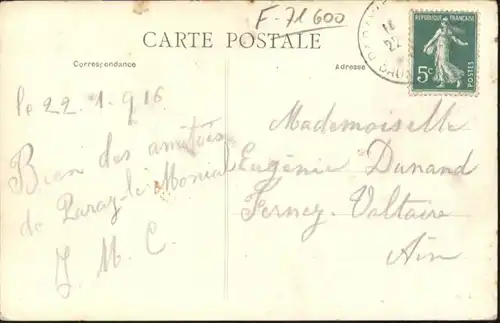 F-71600
CARTE POSTALE
Correspondance
Adresse
RÉPUBLIQUE FRANÇAISE
5c
POSTES
22
le 22.1.916
Bien des amitiés
de Paray-le-Monial
J. M. C.
Mademoiselle
Eugénie Dunand
Ferney-Voltaire
Ain